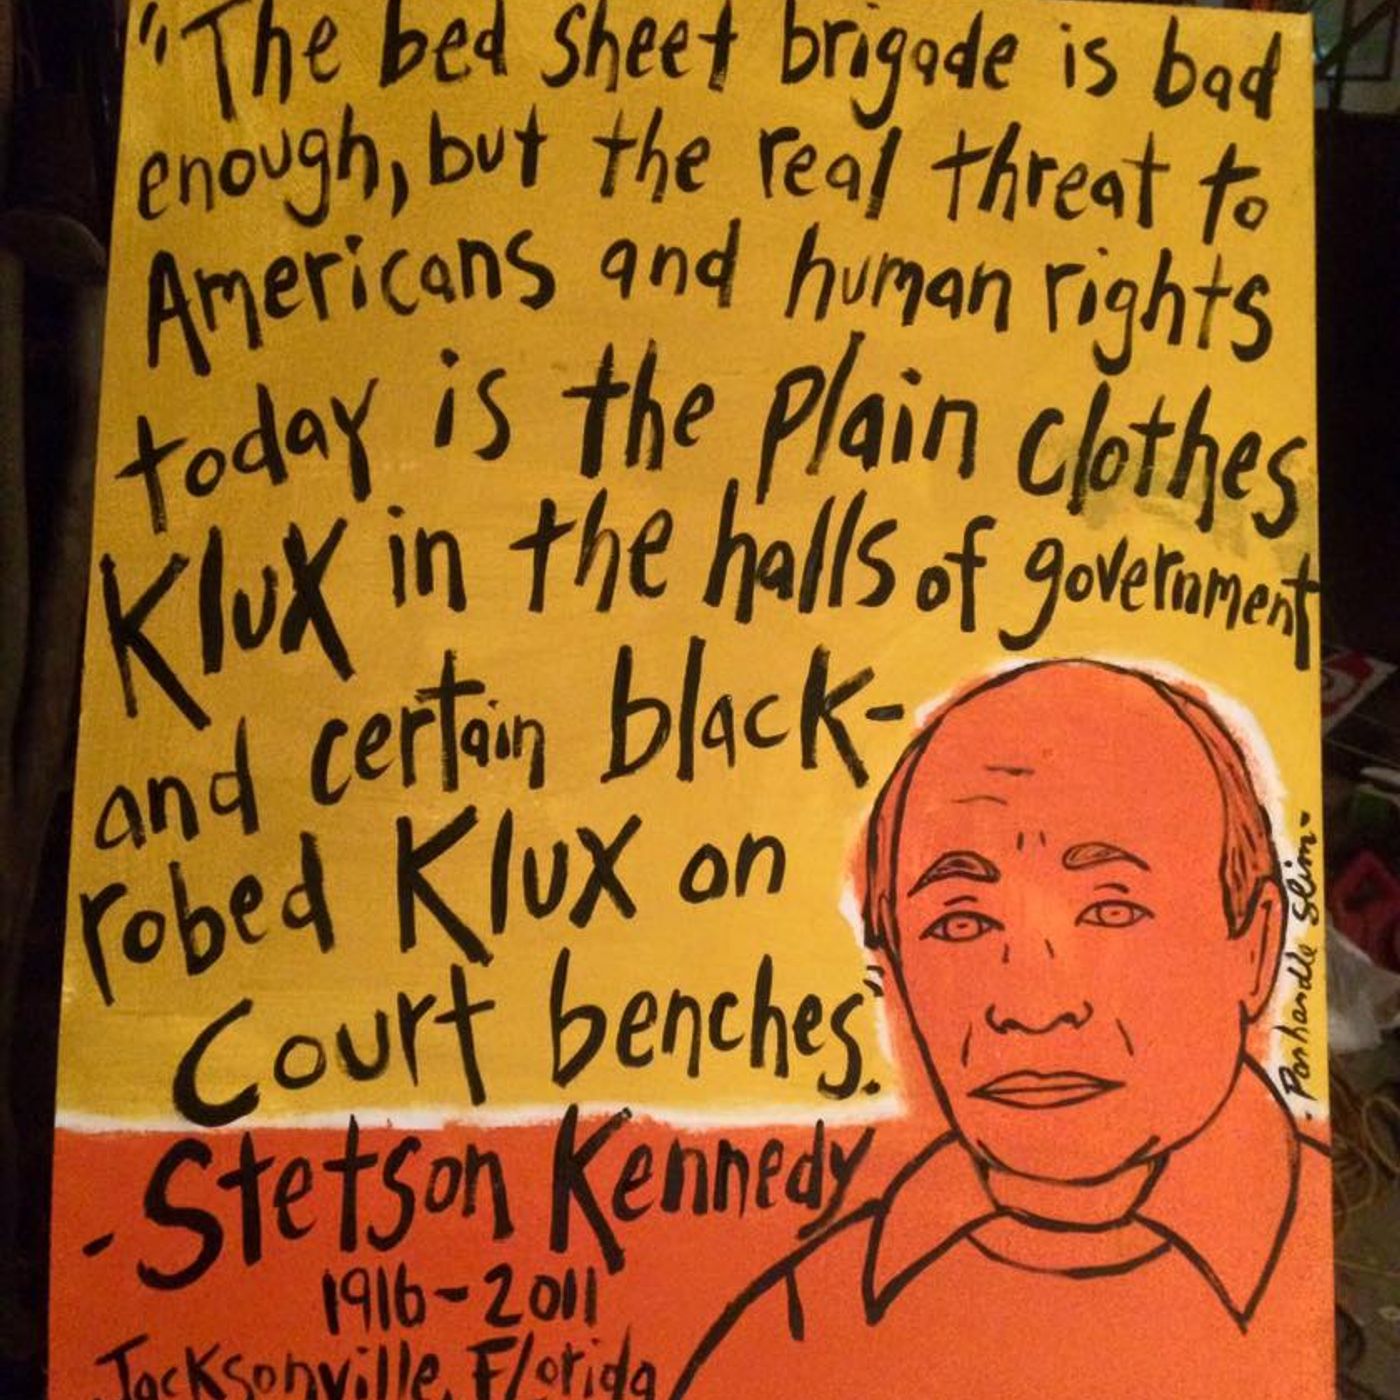 "The bed sheet brigade is bad
enough, but the real threat to
Americans and human rights
today is the plain clothes
Klux in the halls of government
and certain black-
robed Klux on
Court benches."
-Stetson Kennedy
1916-2011
Jacksonville, Florida
-Panhandle Slim-